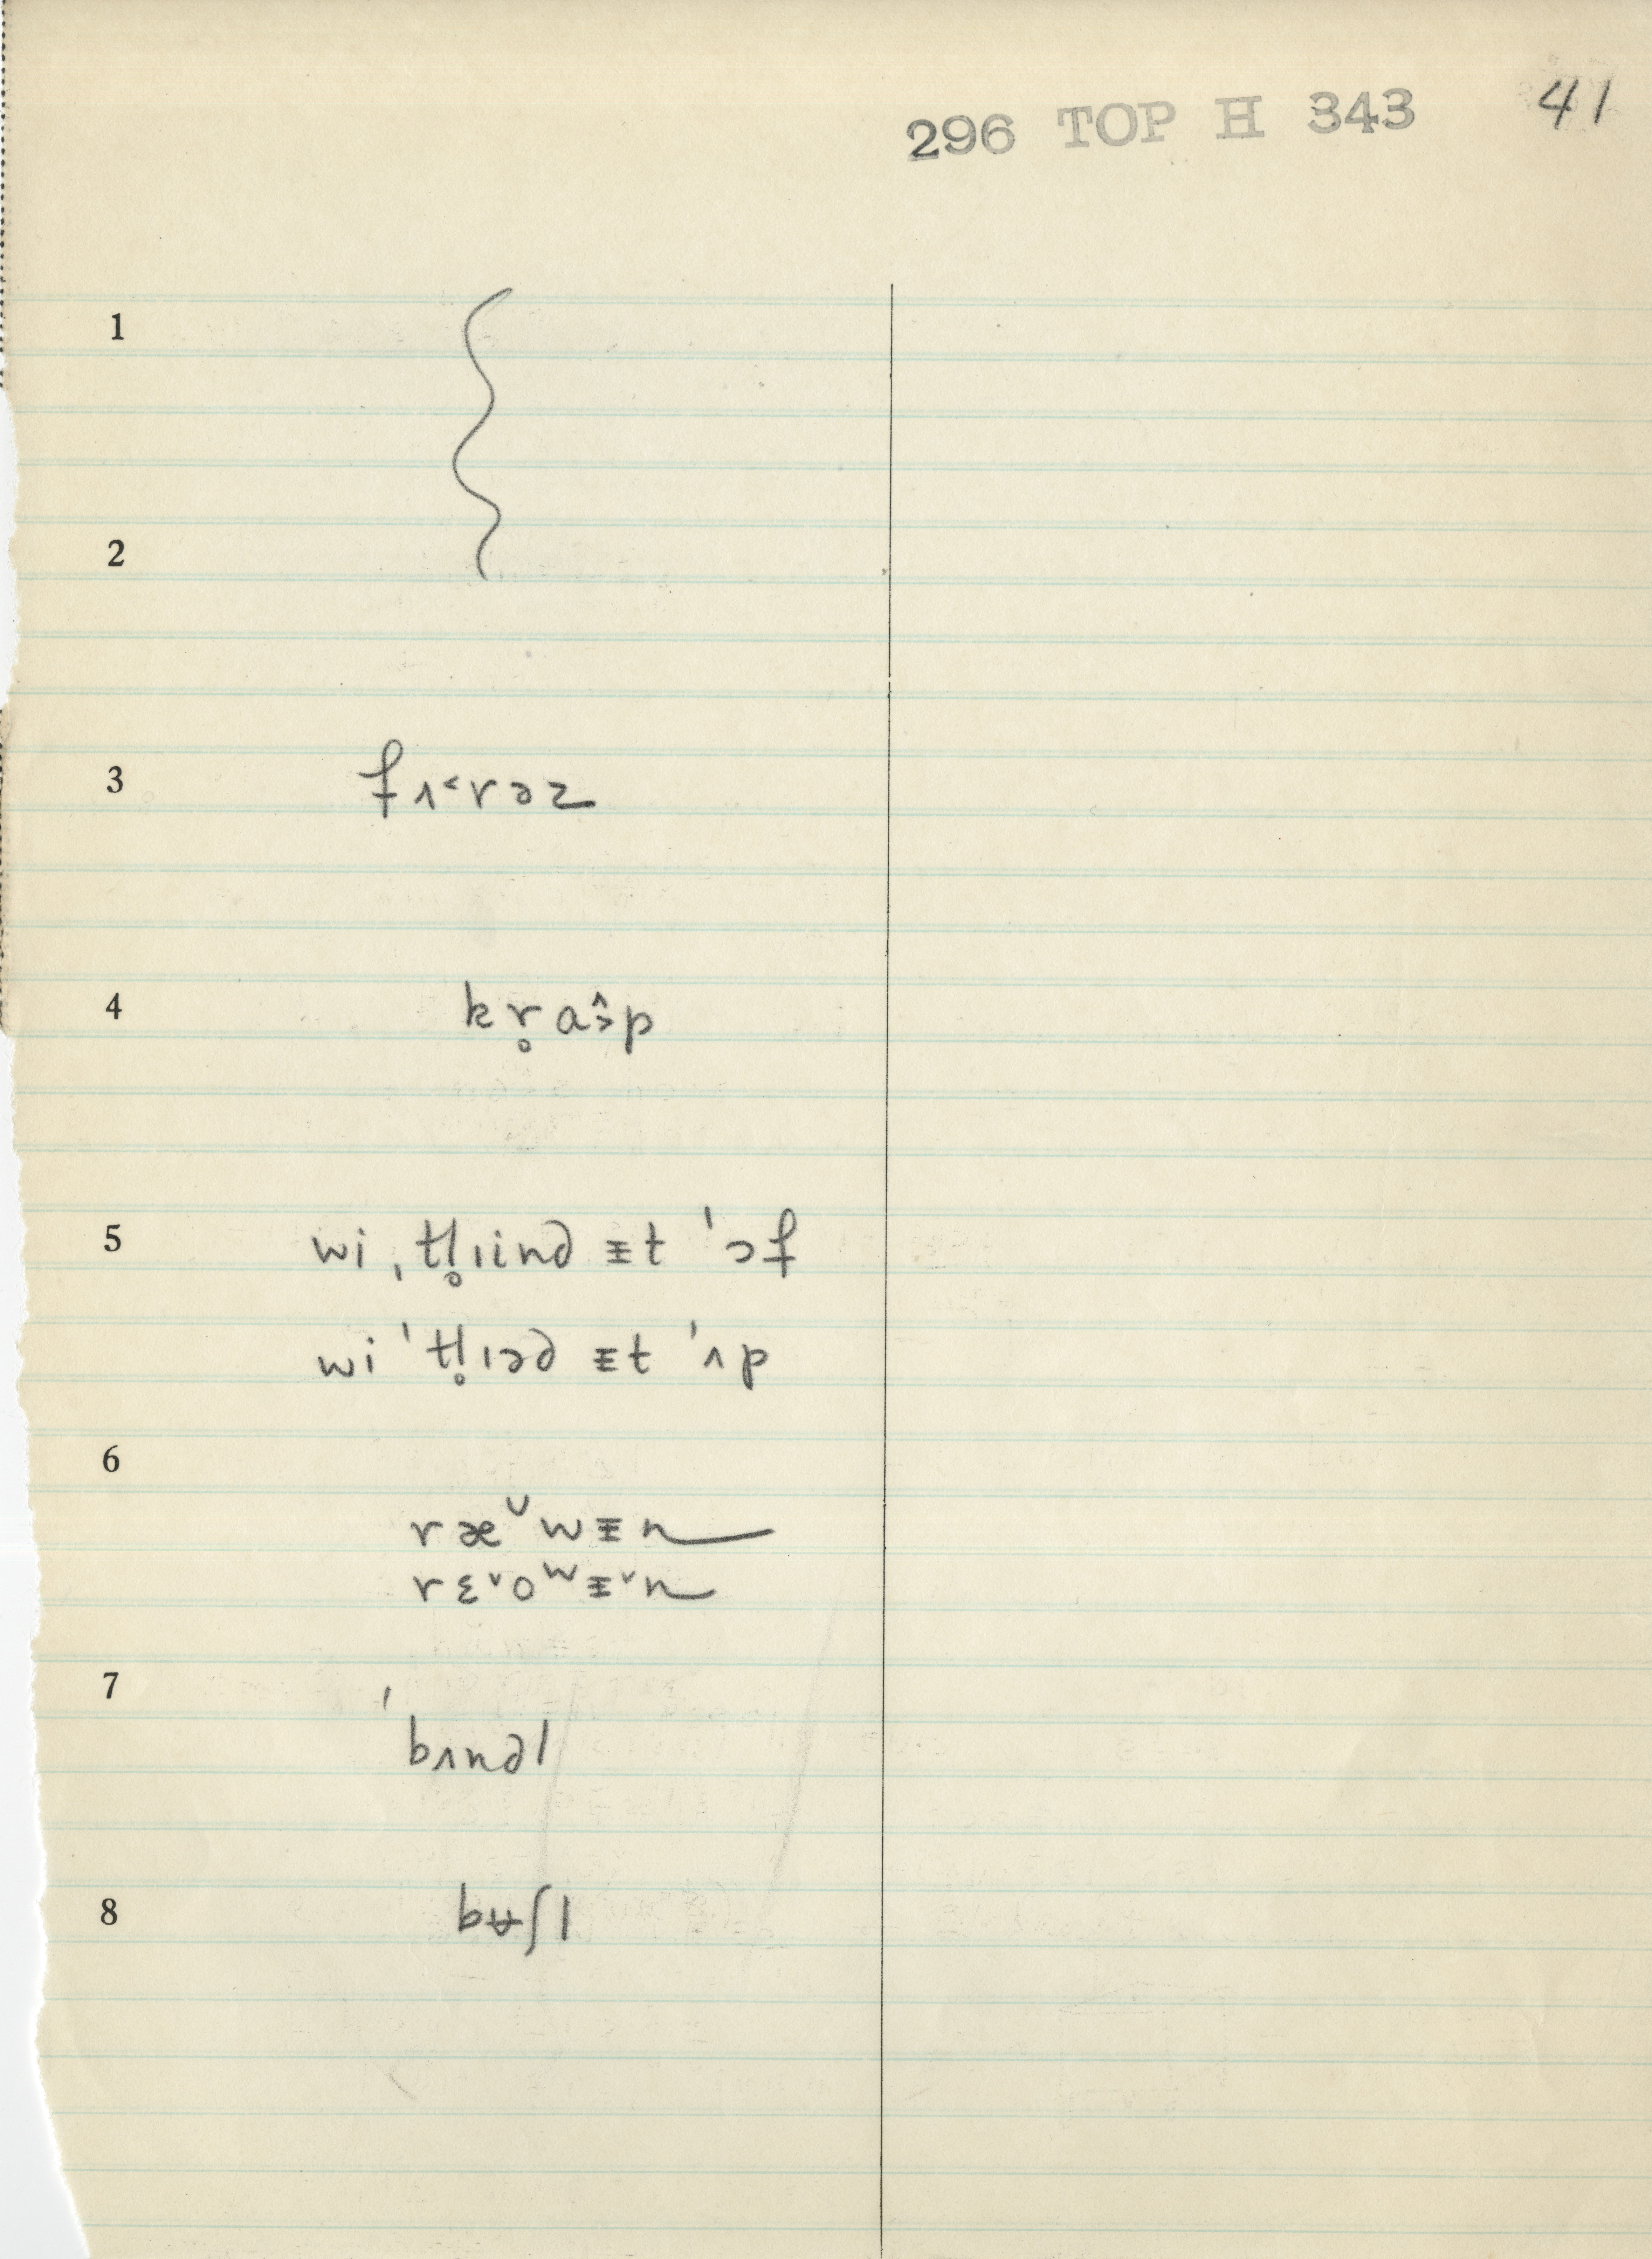 296 TOP H 343 41
1
2
3 fʌ˂rəz
4 kr̥ɑɔ̂p
5 wi ˌtl̥ɪind ɪ̵t ˈɔf
wi ˈtl̥ɪəd ɪ̵t ˈʌp
6
ræ ̌wɪ̵n
rɛ˅oʷɪ̵˅n
7
ˈbʌndl
8 bʉʃl